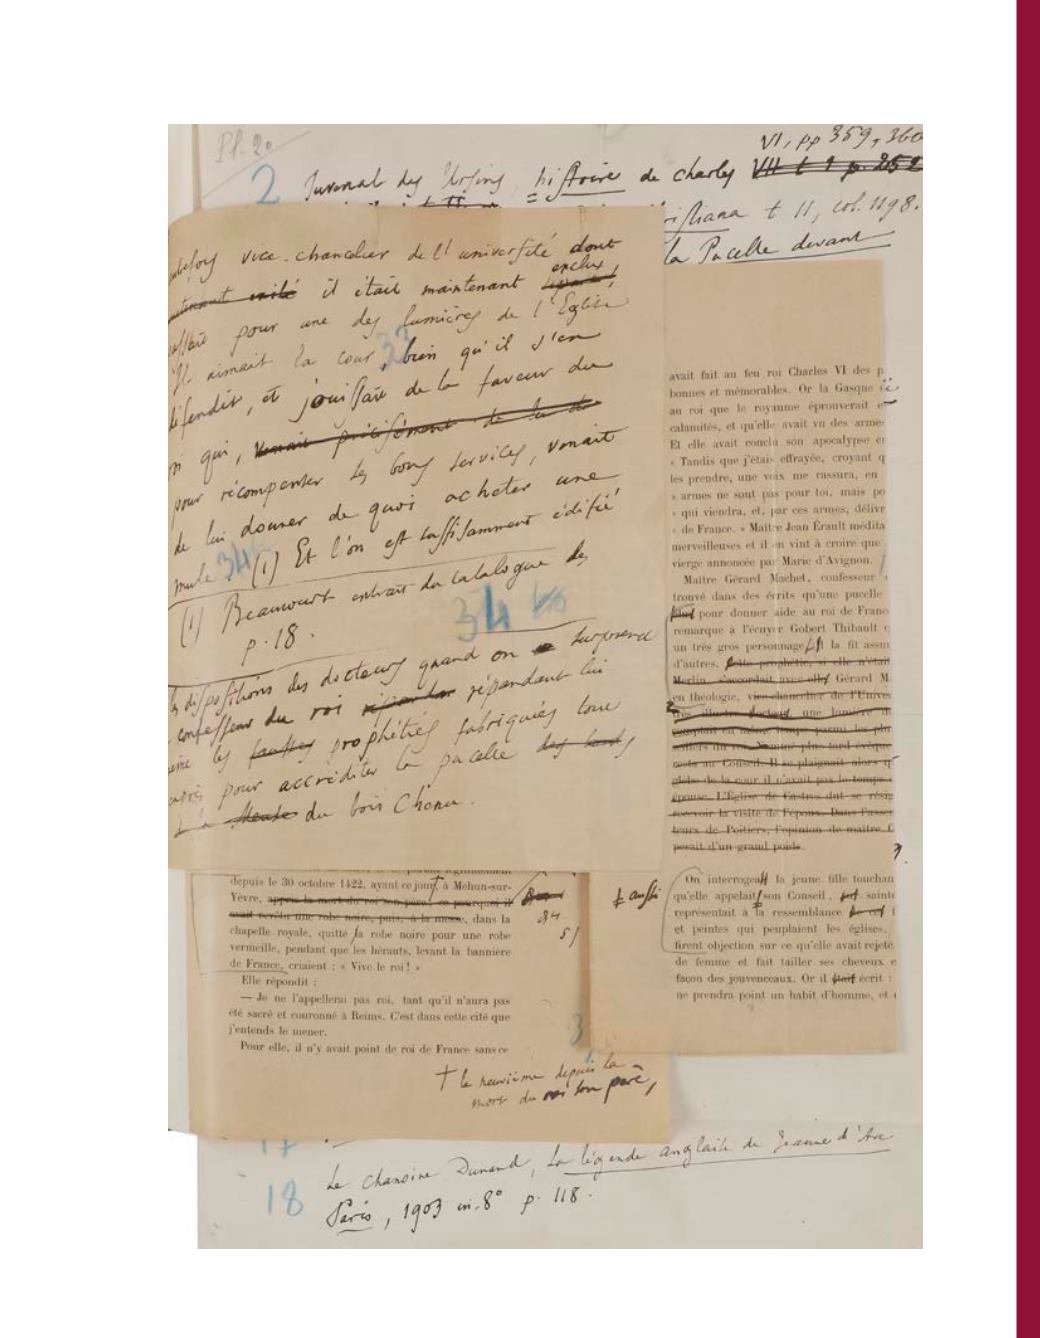 Pl. 20
VI, pp 359, 360
2 Juvenal des Ursins, histoire de charles VII t 1 p. 252
t 11, col. 1198.
la Pucelle devant
vice-chancelier de l'université dont
il était maintenant exclus,
pour une des lumières de l'Eglise
Il aimait la cour, bien qu'il s'en
défendit, et jouissait de la faveur du
qui, venait précisément de lui de
pour récompenser ses bons services, venait
de lui donner de quoi acheter une
mule (1) Et l'on est suffisamment édifié
33
34
(1) Beaucourt extrait du catalogue des
p. 18.
34
dispositions des docteurs quand on surprend
confesseur du roi répandant lui
les fausses prophéties fabriquées tout
exprès pour accréditer la pucelle des bords
du bois Chenu.
avait fait au feu roi Charles VI des p
bonnes et mémorables. Or la Gasque
au roi que le royaume éprouverait
calamités, et qu'elle avait vu des armes
Et elle avait conclu son apocalypse en
« Tandis que j'étais effrayée, croyant q
les prendre, une voix me rassura, en
« armes ne sont pas pour toi, mais po
« qui viendra, et, par ces armes, délivr
« de France. » Maître Jean Érault médita
merveilleuses et il en vint à croire que
vierge annoncée par Marie d'Avignon.
Maître Gérard Machet, confesseur
trouvé dans des écrits qu'une pucelle
pour donner aide au roi de Franc
remarque à l'écuyer Gobert Thibault
un très gros personnage la fit assu
d'autres. Cette prophétie, si elle n'était
Merlin, s'accordait avec elle, Gérard M
en théologie, vice-chancelier de l'Unive
très illustre docteur, une lumière
comptait en même temps parmi les plu
du roi. Nommé plus tard évêque
resta au Conseil. Il se plaignait alors q
globe de la cour il n'avait pas le temps
épouse. L'Église de Castres dut se résig
recevoir la visite de l'époux. Dans l'asse
teurs de Poitiers, l'opinion de maître
pesait d'un grand poids.
On interrogea la jeune fille touchan
qu'elle appelait son Conseil, sainte
représentait à la ressemblance
et peintes qui peuplaient les églises.
firent objection sur ce qu'elle avait rejeté
de femme et fait tailler ses cheveux e
façon des jouvenceaux. Or il était écrit :
ne prendra point un habit d'homme, et
aussi
depuis le 30 octobre 1422, ayant ce jour, à Mehun-sur-
Yèvre, appris la mort du roi son père, ce pourquoi il
avait revêtu une robe noire, puis, à la messe, dans la
chapelle royale, quitté la robe noire pour une robe
vermeille, pendant que les hérauts, levant la bannière
de France, criaient : « Vive le roi ! »
Elle répondit :
— Je ne l'appellerai pas roi, tant qu'il n'aura pas
été sacré et couronné à Reims. C'est dans cette cité que
j'entends le mener.
Pour elle, il n'y avait point de roi de France sans ce
84
3
† le neuvième depuis la
mort du roi son père,
17
18 Le chanoine Dunand, La légende anglaise de Jeanne d'Arc
Paris, 1903 in-8° p. 118.